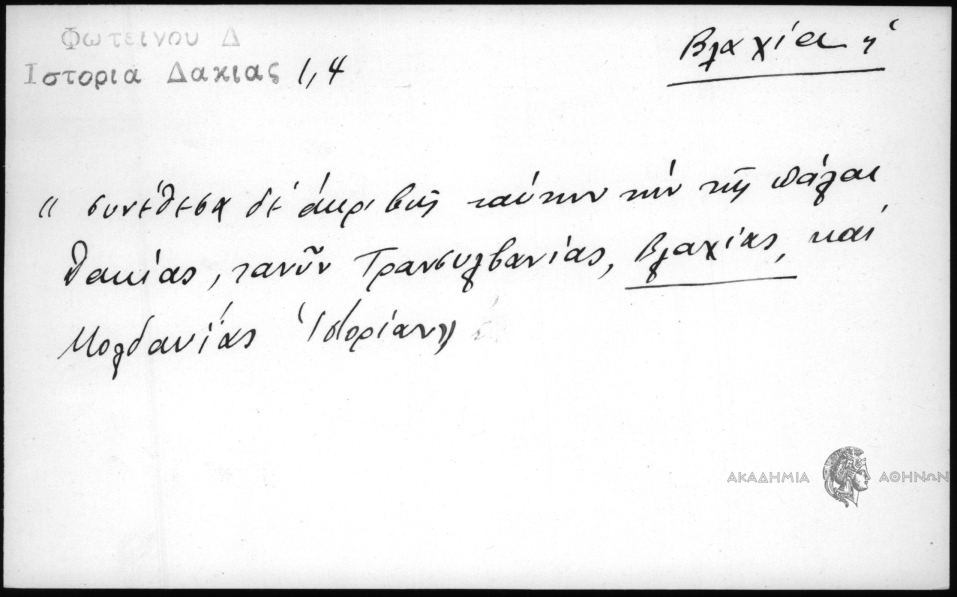 Φωτεινου Δ
Ιστορια Δακιας 1,4
Βλαχία ἡ
"συνέθεσα δέ ἀκριβῆ ταύτην τήν τῆς πάλαι
Δακίας, τανῦν Τρανσυλβανίας, Βλαχίας, καί
Μολδανίας Ἱστορίαν"
ΑΚΑΔΗΜΙΑ ΑΘΗΝΩΝ